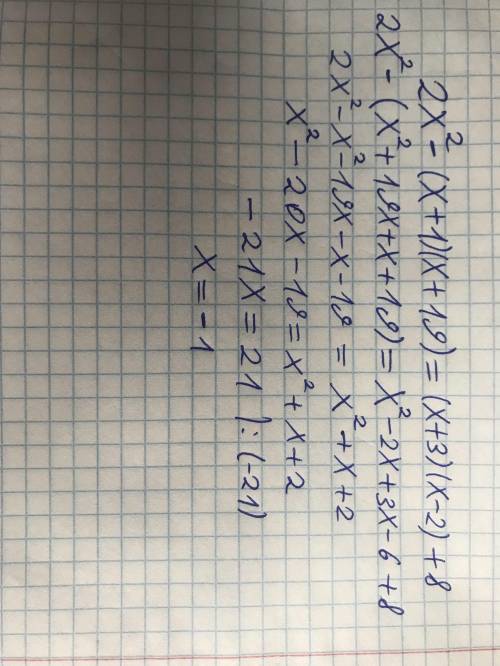 2x² - (x+1)(x+19) = (x+3)(x-2)+8
2x² - (x²+19x+x+19) = x²-2x+3x-6+8
2x²-x²-19x-x-19 = x²+x+2
x²-20x-19=x²+x+2
-21x=21 ):(-21)
x=-1